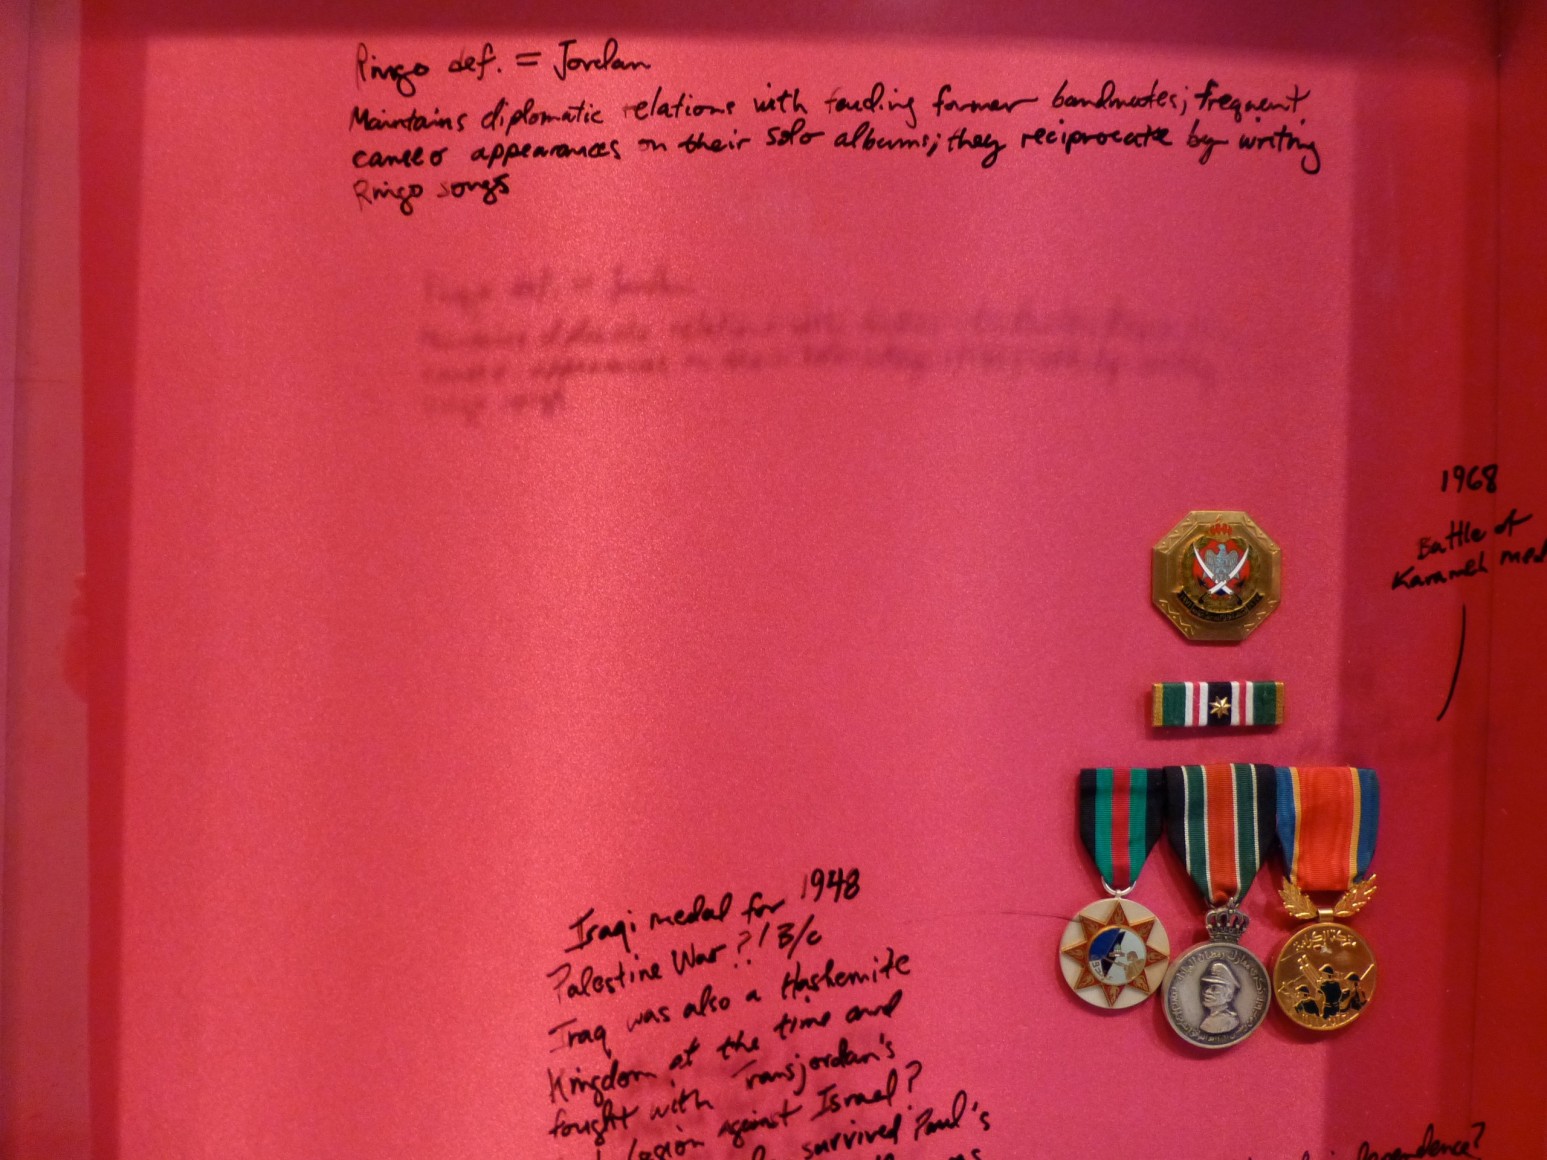 Ringo def. = Jordan
Maintains diplomatic relations with feuding former bandmates; frequent
cameo appearances on their solo albums; they reciprocate by writing
Ringo songs
1968
Battle of
Karameh
Iraqi medal for 1948
Palestine War?! B/c
Iraq was also a Hashemite
Kingdom at the time and
fought with Transjordan's
Legion against Israel?
survived Paul's
independence?